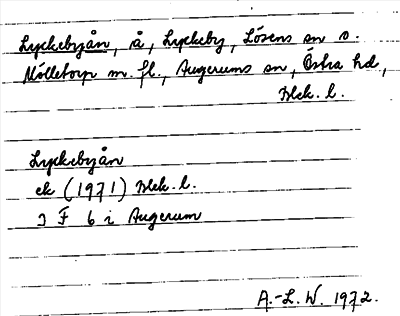 Lyckebyån, å, Lyckeby, Lösens sn o.
Mölletorp m. fl., Augerums sn, Östra hd,
Blek. l.
Lyckebyån
ek (1971) Blek. l.
J F 6 i Augerum
A.-L. W. 1972.